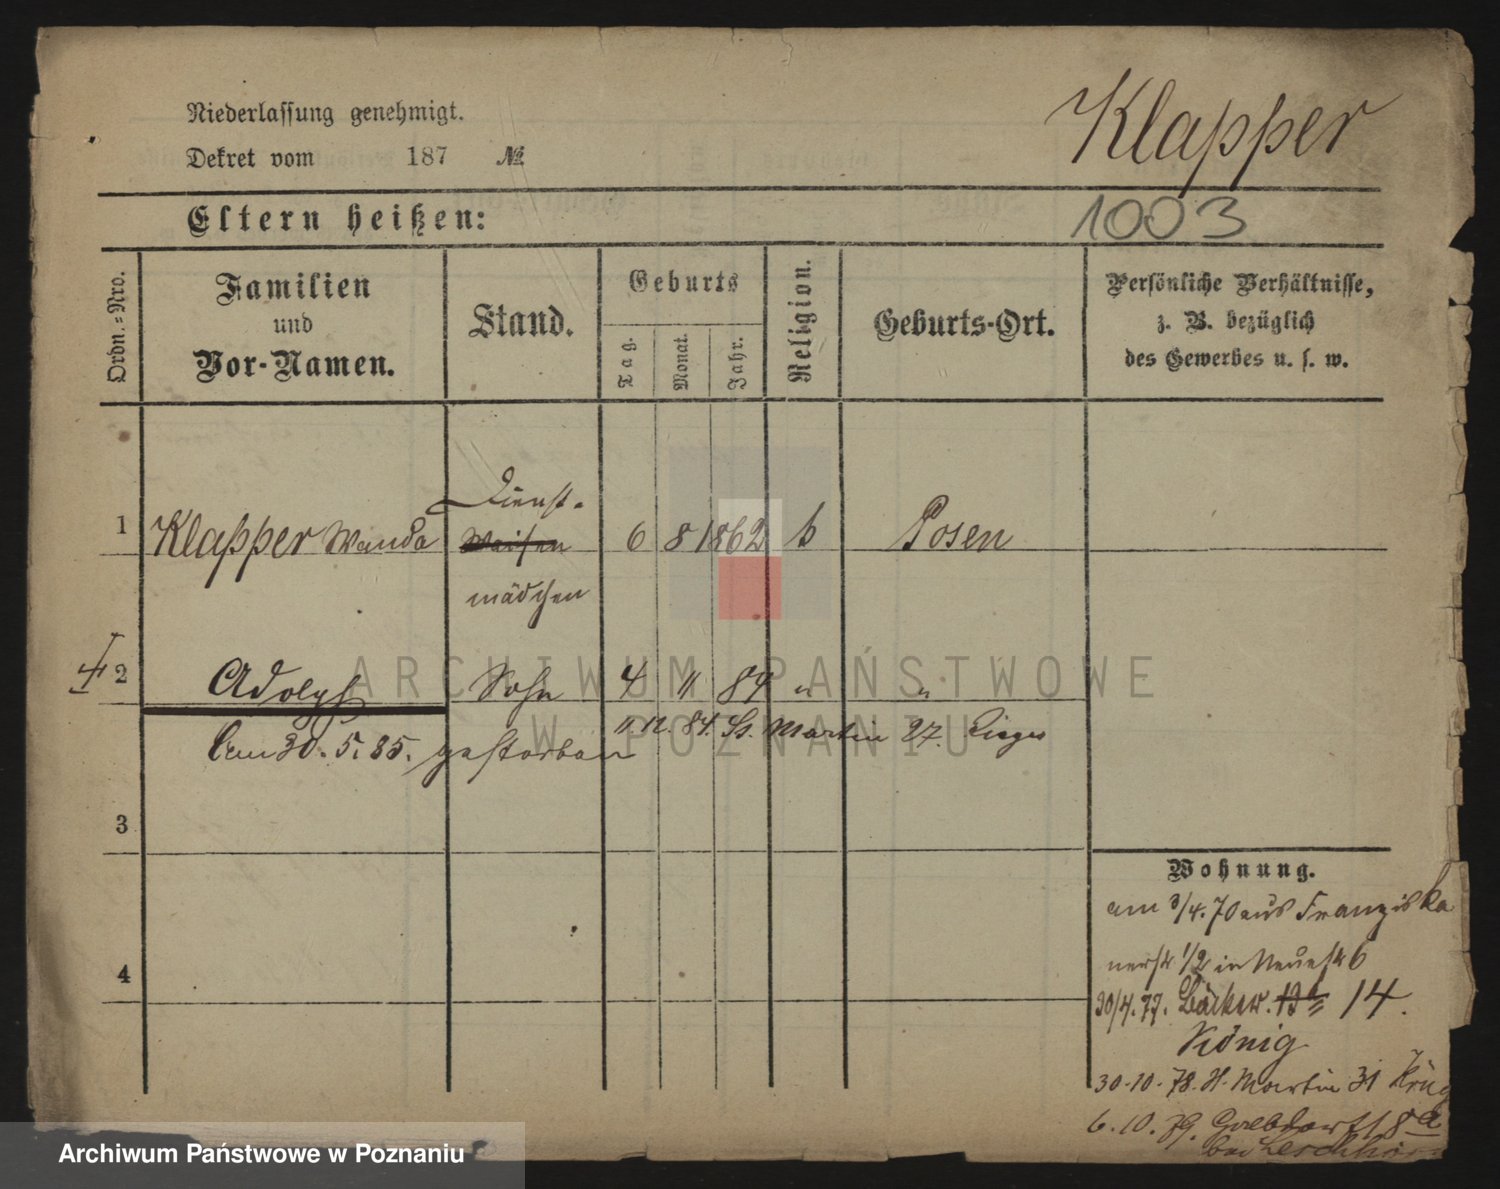 Klapper
Niederlassung genehmigt.
Dekret vom 187 №
Eltern heißen:
1003
Ordn.-Nro.
Familien
und
Vor-Namen.
Stand.
Geburts
Tag.
Monat.
Jahr.
Religion.
Geburts-Ort.
Persönliche Verhältnisse,
z. B. bezüglich
des Gewerbes u. s. w.
Dienst-
1 Klapper Wanda Waisen 6 8 1862 k Posen
mädchen
2 Adolph Sohn 4 11 84 " "
11.12. 84. St. Martin 27.
Am 30. 5. 85. gestorben
3
4
Wohnung.
am 3/4. 70 aus Franziska
nerstr 1/2 in Neuestr 6
20/4. 77. Bäcker. 14.
König
30-10-78. St. Martin 31 Krug
6. 10. 79. 18a
bei
ARCHIWUM PAŃSTWOWE
W POZNANIU
Archiwum Państwowe w Poznaniu